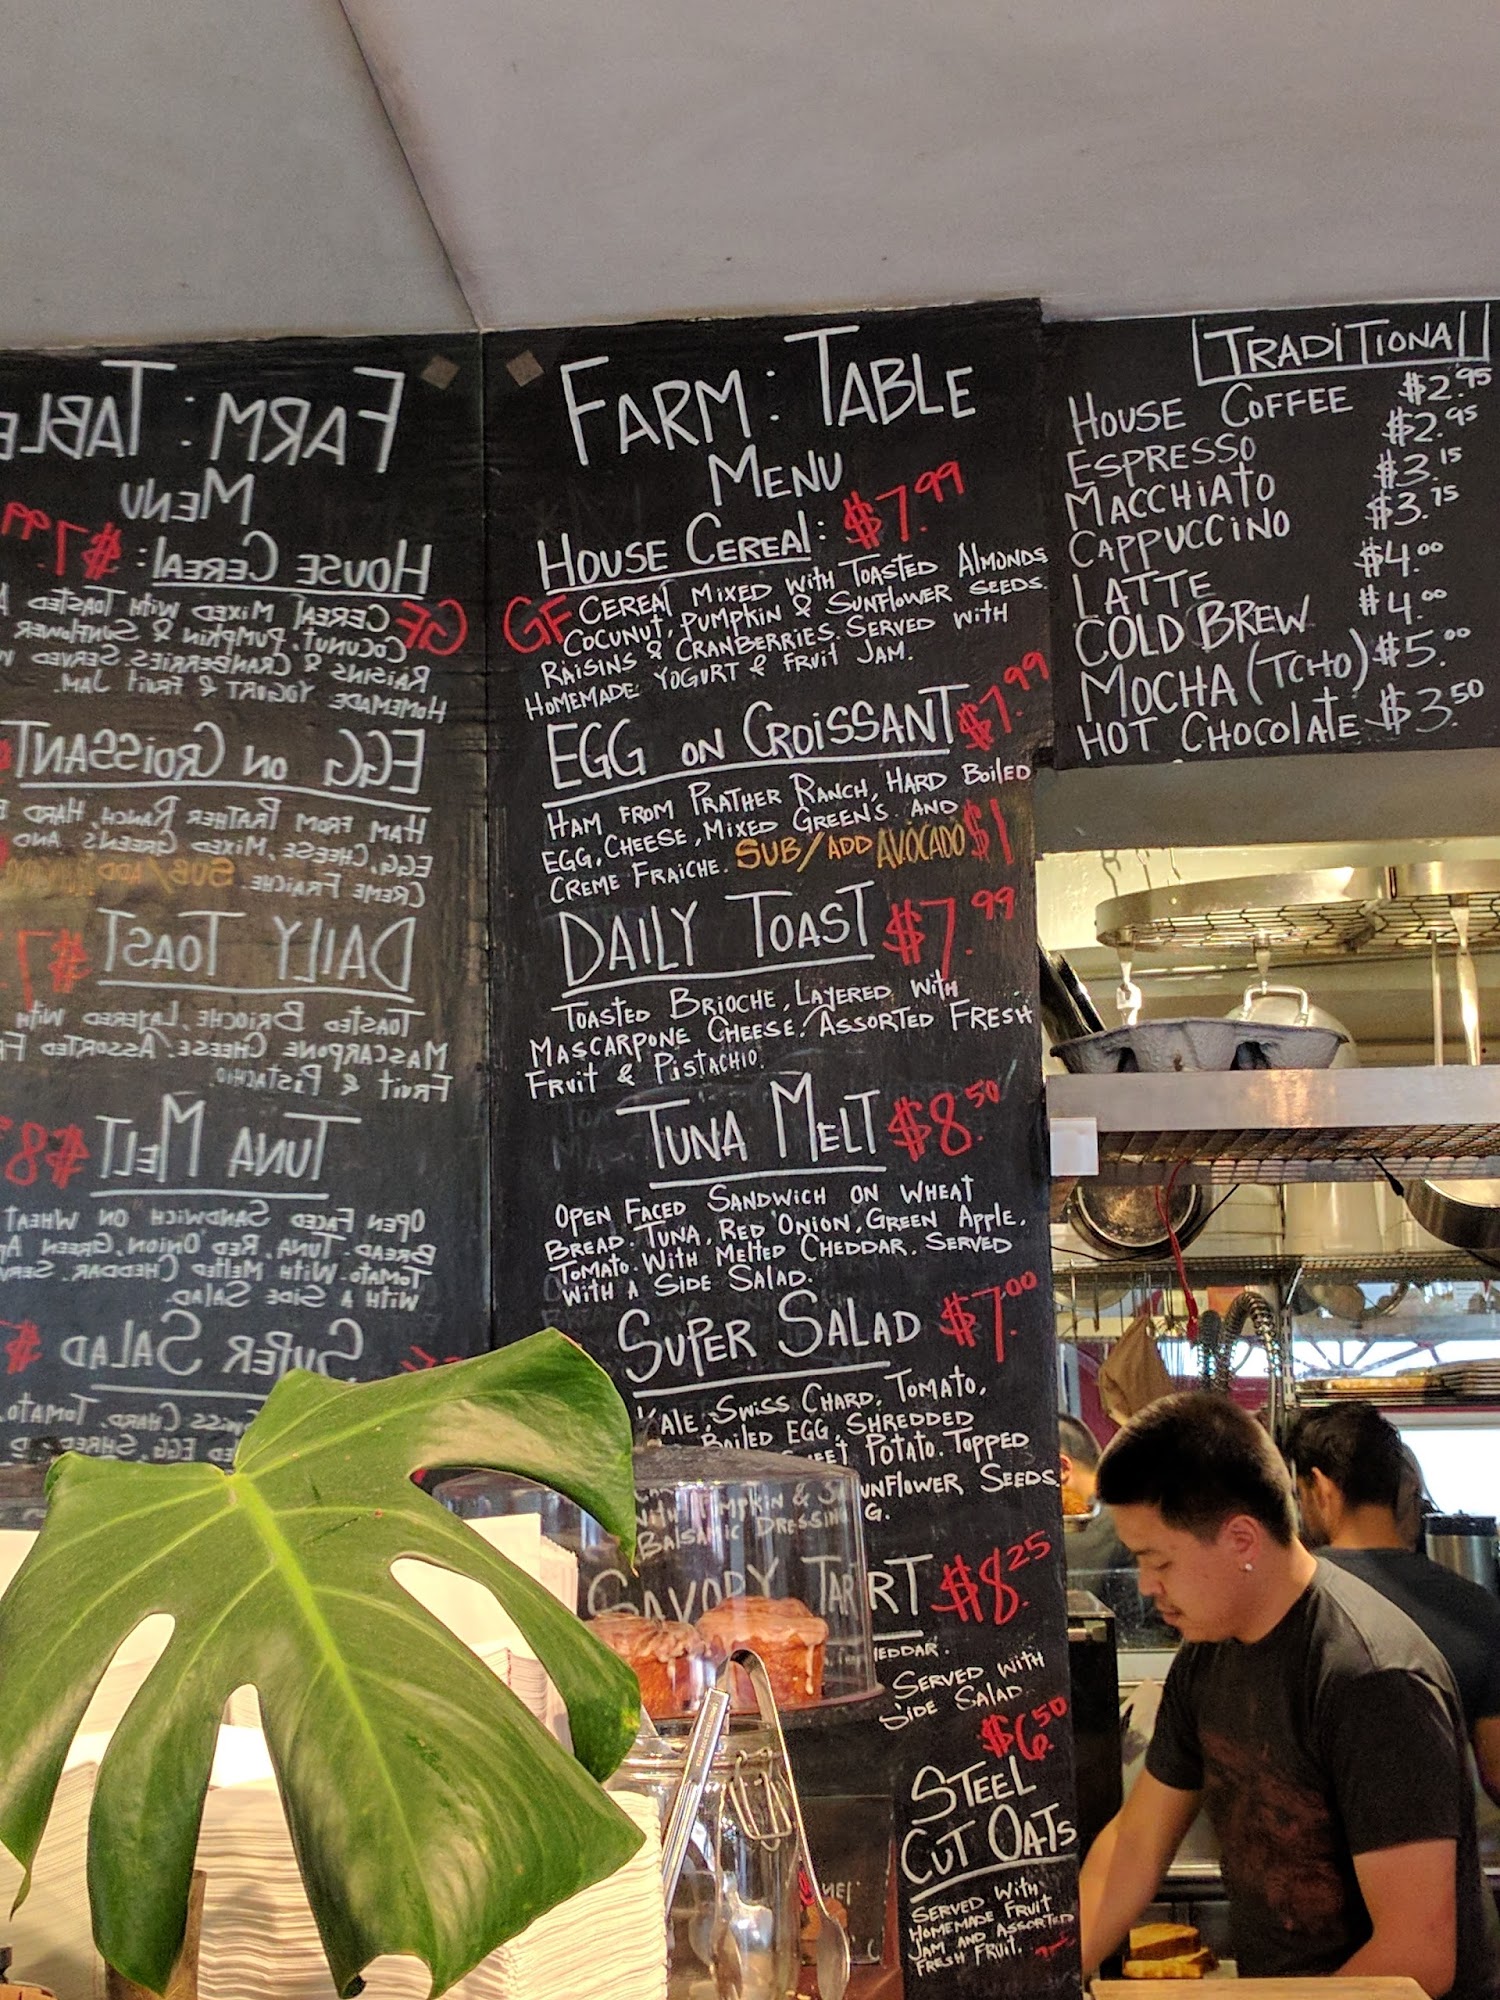 FARM : TABLE
MENU
HOUSE CEREAL: $7.99
GF CEREAL MIXED WITH TOASTED ALMONDS
COCUNUT, PUMPKIN & SUNFLOWER SEEDS.
RAISINS & CRANBERRIES. SERVED WITH
HOMEMADE YOGURT & FRUIT JAM.
EGG ON CROISSANT $7.99
HAM FROM PRATHER RANCH, HARD BOILED
EGG, CHEESE, MIXED GREEN'S AND
CREME FRAICHE. SUB/ADD AVOCADO $1
DAILY TOAST $7.99
TOASTED BRIOCHE, LAYERED WITH
MASCARPONE CHEESE. ASSORTED FRESH
FRUIT & PISTACHIO.
TUNA MELT $8.50
OPEN FACED SANDWICH ON WHEAT
BREAD. TUNA, RED ONION, GREEN APPLE,
TOMATO. WITH MELTED CHEDDAR. SERVED
WITH A SIDE SALAD.
SUPER SALAD $7.00
KALE, SWISS CHARD, TOMATO,
BOILED EGG, SHREDDED
POTATO. TOPPED
WITH PUMPKIN & SUNFLOWER SEEDS.
BALSAMIC DRESSING.
SAVORY TART $8.25
CHEDDAR.
SERVED WITH
SIDE SALAD.
$6.50
STEEL
CUT OATS
SERVED WITH
HOMEMADE FRUIT
JAM AND ASSORTED
FRESH FRUIT.
TRADITIONAL
HOUSE COFFEE $2.95
ESPRESSO $2.95
MACCHIATO $3.15
CAPPUCCINO $3.75
LATTE $4.00
COLD BREW $4.00
MOCHA (TCHO) $5.00
HOT CHOCOLATE $3.50